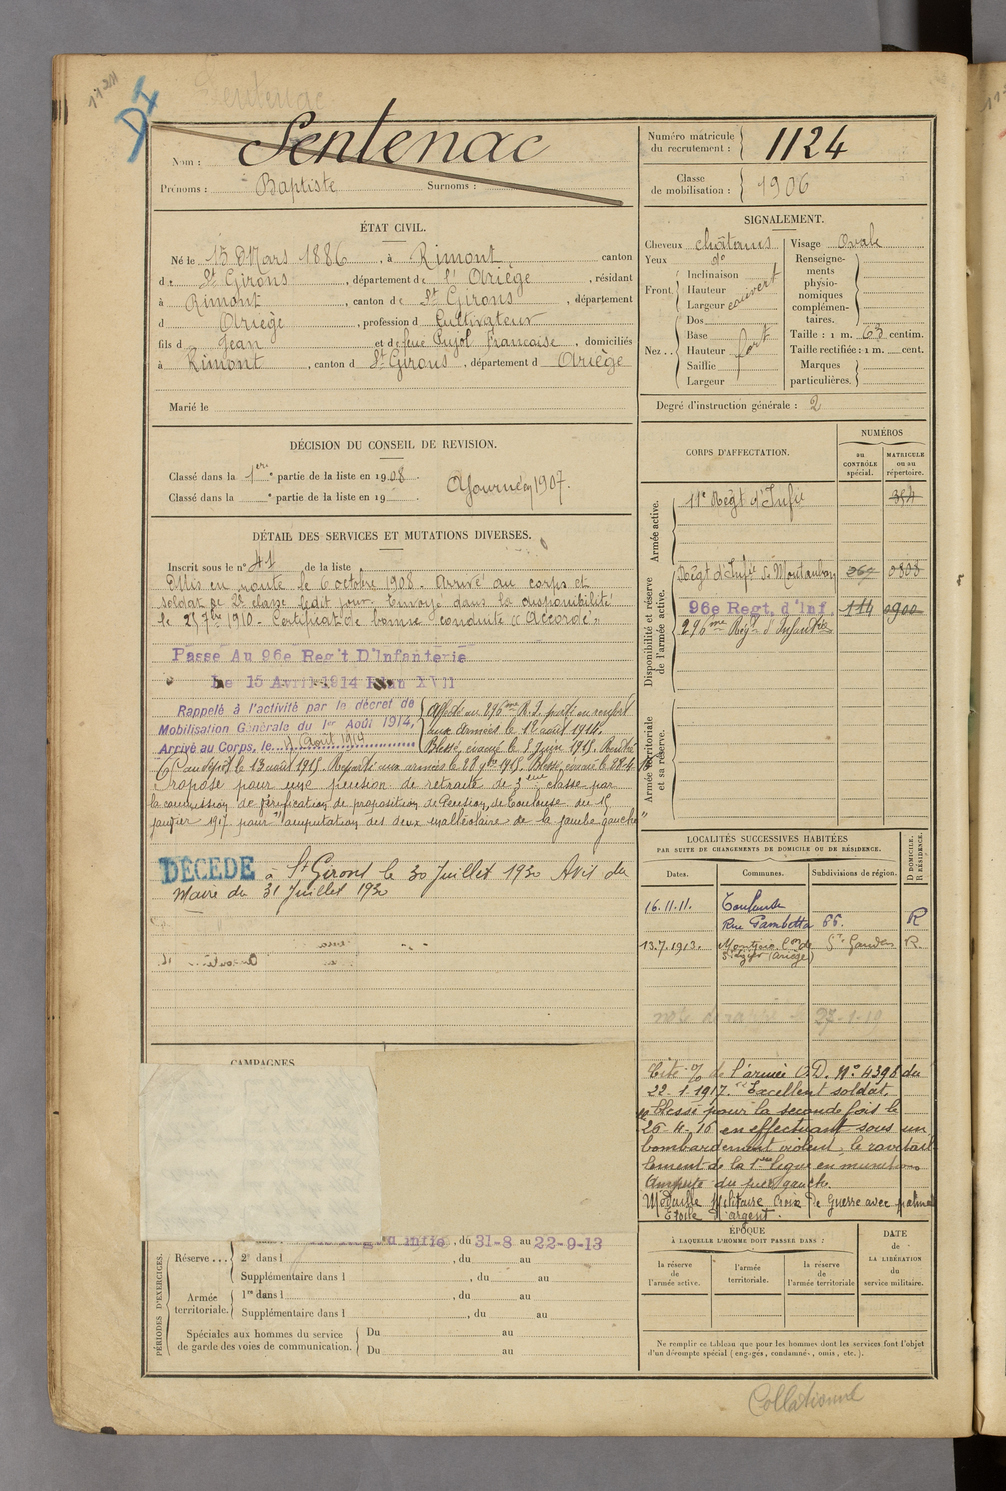 1124
DI
Sentenac
Nom : Sentenac
Prénoms : Baptiste Surnoms :
Numéro matricule du recrutement : 1124
Classe de mobilisation : 1906
ÉTAT CIVIL.
Né le 15 Mars 1886, à Rimont, canton
de St Girons, département de l'Ariège, résidant
à Rimont, canton de St Girons, département
d Ariège, profession d Cultivateur
fils d Jean et de feue Pujol Francoise, domiciliés
à Rimont, canton d St Girons, département d Ariège
Marié le
SIGNALEMENT.
Cheveux châtains
Yeux do
Front Inclinaison
Hauteur
Largeur
couvert
Nez .. Dos
Base
Hauteur
Saillie
Largeur
fort
Visage Ovale
Renseignements physionomiques complémentaires.
Taille : 1 m. 63 centim.
Taille rectifiée : 1 m. cent.
Marques particulières.
Degré d'instruction générale : 2
DÉCISION DU CONSEIL DE REVISION.
Classé dans la 1ere partie de la liste en 1908.
Classé dans la e partie de la liste en 19
Ajourné en 1907.
DÉTAIL DES SERVICES ET MUTATIONS DIVERSES.
Inscrit sous le n° 41 de la liste
Mis en route le 6 octobre 1908. Arrivé au corps et
soldat de 2e classe ledit jour. Envoyé dans la disponibilité
le 25 7bre 1910. Certificat de bonne conduite "Accordé"
Passé Au 96e Reg't D'Infanterie
Le 15 Avril 1914 Plan XVII
Rappelé à l'activité par le décret de
Mobilisation Générale du 1er Août 1914,
Arrivé au Corps, le 11 août 1914
Affecté au 296me R.I. parti en renfort
aux armées le 12 août 1914.
Blessé, évacué le 5 Juin 1915. Rentré
au dépôt le 13 août 1915. Reparti aux armées le 28 9bre 1915. Blessé, évacué le 28.4.16
Proposé pour une pension de retraite de 3eme classe par
la commission de vérification de proposition de Pension, de Toulouse du 15
janvier 1917 pour "amputation des deux malléolaire de la jambe gauche"
DÉCÉDÉ à St Girons le 30 Juillet 1930 Avis du
Maire du 31 Juillet 1930
CORPS D'AFFECTATION.
NUMÉROS
au CONTRÔLE spécial.
MATRICULE ou au répertoire.
Armée active.
11e Régt d'Infie 354
Disponibilité et réserve de l'armée active.
Régt d'Infie de Montauban 267 0308
96e Regt. d'Inf. 114 0900
296me Régt d'Infanterie
Armée territoriale et sa réserve.
LOCALITÉS SUCCESSIVES HABITÉES
PAR SUITE DE CHANGEMENTS DE DOMICILE OU DE RÉSIDENCE.
Dates. Communes. Subdivisions de région. D DOMICILE. R RÉSIDENCE.
16.11.11. Toulouse
Rue Gambetta 66. R
13.7.1913. Montjoie Con de St Lizier (Ariège) St Gaudens R.
27-1-19
Cité o/o de l'armée O.D. N° 4398 du
22-1-1917. "Excellent soldat,
blessé pour la seconde fois le
26-4-16 en effectuant sous un
bombardement violent, le ravitail-
lement de la 1ere ligne en munitions
Amputé du pied gauche.
Médaille Militaire Croix de Guerre avec palme
Etoile d'argent.
CAMPAGNES
PÉRIODES D'EXERCICES.
d'Infie, du 31-8 au 22-9-13
Réserve .... 2e dans l , du au
Supplémentaire dans l , du au
Armée territoriale. 1re dans l , du au
Supplémentaire dans l , du au
Spéciales aux hommes du service de garde des voies de communication. Du au
Du au
ÉPOQUE
À LAQUELLE L'HOMME DOIT PASSER DANS :
la réserve de l'armée active.
l'armée territoriale.
la réserve de l'armée territoriale
DATE de LA LIBÉRATION du service militaire.
Ne remplir ce tableau que pour les hommes dont les services font l'objet
d'un décompte spécial (engagés, condamnés, omis, etc.).
Collationné